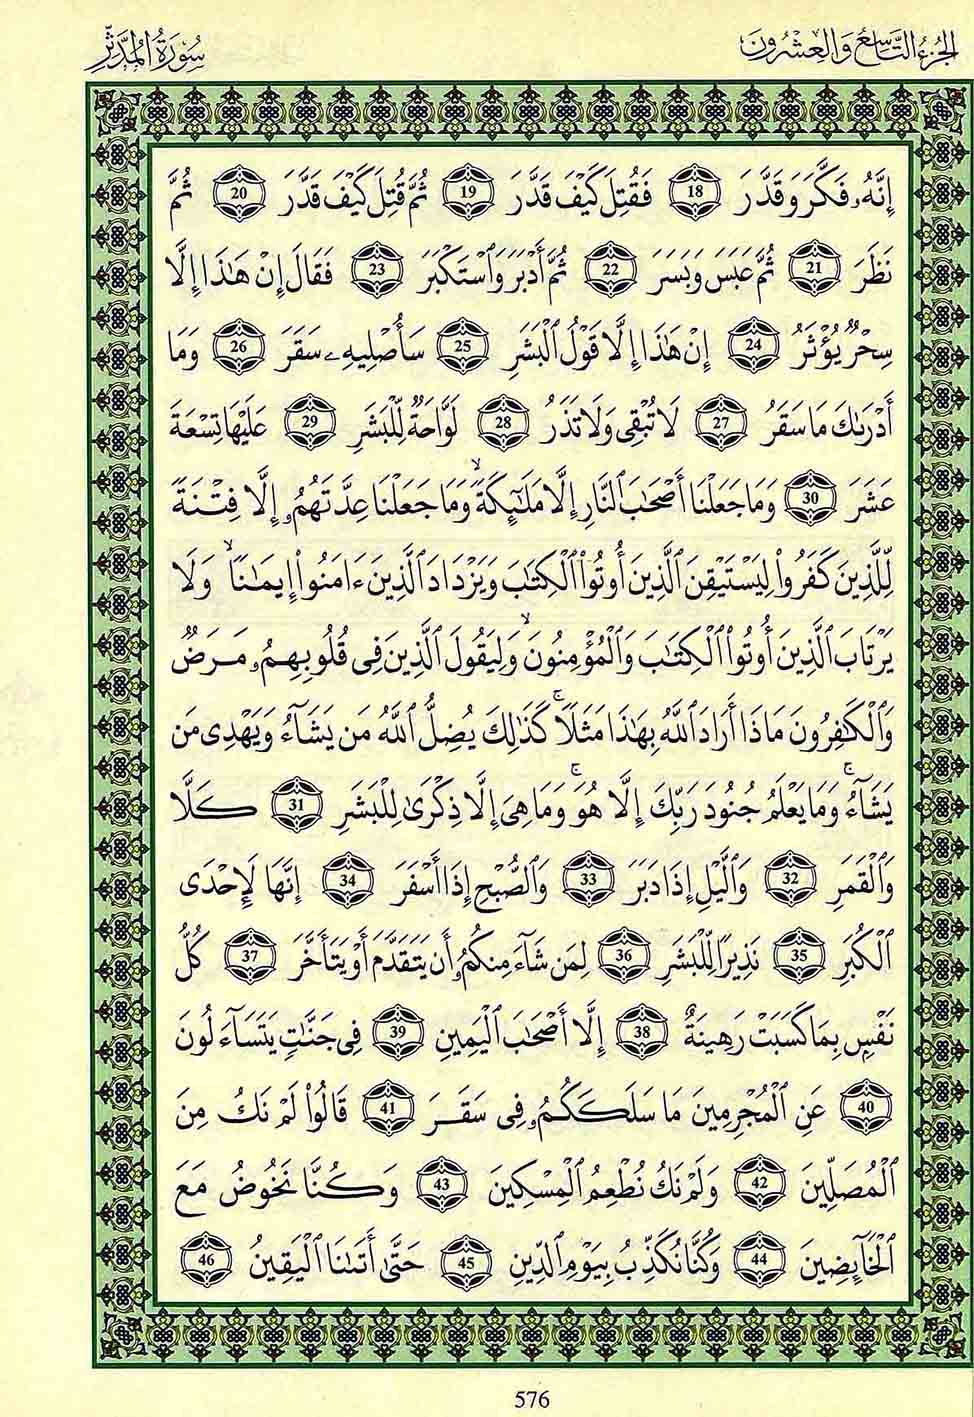 الجزء التاسع والعشرون
سورة المدثر
إِنَّهُۥ فَكَّرَ وَقَدَّرَ 18 فَقُتِلَ كَيْفَ قَدَّرَ 19 ثُمَّ قُتِلَ كَيْفَ قَدَّرَ 20 ثُمَّ
نَظَرَ 21 ثُمَّ عَبَسَ وَبَسَرَ 22 ثُمَّ أَدْبَرَ وَٱسْتَكْبَرَ 23 فَقَالَ إِنْ هَٰذَا إِلَّا
سِحْرٌ يُؤْثَرُ 24 إِنْ هَٰذَا إِلَّا قَوْلُ ٱلْبَشَرِ 25 سَأُصْلِيهِۦ سَقَرَ 26 وَمَا
أَدْرَىٰكَ مَا سَقَرُ 27 لَا تُبْقِى وَلَا تَذَرُ 28 لَوَّاحَةٌ لِّلْبَشَرِ 29 عَلَيْهَا تِسْعَةَ
عَشَرَ 30 وَمَا جَعَلْنَا أَصْحَٰبَ ٱلنَّارِ إِلَّا مَلَٰٓئِكَةً ۙ وَمَا جَعَلْنَا عِدَّتَهُمُۥ إِلَّا فِتْنَةً
لِّلَّذِينَ كَفَرُوا۟ لِيَسْتَيْقِنَ ٱلَّذِينَ أُوتُوا۟ ٱلْكِتَٰبَ وَيَزْدَادَ ٱلَّذِينَ ءَامَنُوا۟ إِيمَٰنًا ۙ وَلَا
يَرْتَابَ ٱلَّذِينَ أُوتُوا۟ ٱلْكِتَٰبَ وَٱلْمُؤْمِنُونَ ۙ وَلِيَقُولَ ٱلَّذِينَ فِى قُلُوبِهِمُۥ مَرَضٌ
وَٱلْكَٰفِرُونَ مَاذَا أَرَادَ ٱللَّهُ بِهَٰذَا مَثَلًا ۚ كَذَٰلِكَ يُضِلُّ ٱللَّهُ مَن يَشَآءُ وَيَهْدِى مَن
يَشَآءُ ۚ وَمَا يَعْلَمُ جُنُودَ رَبِّكَ إِلَّا هُوَ ۚ وَمَا هِىَ إِلَّا ذِكْرَىٰ لِلْبَشَرِ 31 كَلَّا
وَٱلْقَمَرِ 32 وَٱلَّيْلِ إِذَا دَبَرَ 33 وَٱلصُّبْحِ إِذَا أَسْفَرَ 34 إِنَّهَا لَإِحْدَى
ٱلْكُبَرِ 35 نَذِيرًا لِّلْبَشَرِ 36 لِمَن شَآءَ مِنكُمُۥ أَن يَتَقَدَّمَ أَوْ يَتَأَخَّرَ 37 كُلُّ
نَفْسٍ بِمَا كَسَبَتْ رَهِينَةٌ 38 إِلَّا أَصْحَٰبَ ٱلْيَمِينِ 39 فِى جَنَّٰتٍ يَتَسَآءَلُونَ
40 عَنِ ٱلْمُجْرِمِينَ مَا سَلَكَكُمُۥ فِى سَقَرَ 41 قَالُوا۟ لَمْ نَكُ مِنَ
ٱلْمُصَلِّينَ 42 وَلَمْ نَكُ نُطْعِمُ ٱلْمِسْكِينَ 43 وَكُنَّا نَخُوضُ مَعَ
ٱلْخَآئِضِينَ 44 وَكُنَّا نُكَذِّبُ بِيَوْمِ ٱلدِّينِ 45 حَتَّىٰ أَتَىٰنَا ٱلْيَقِينُ 46
576